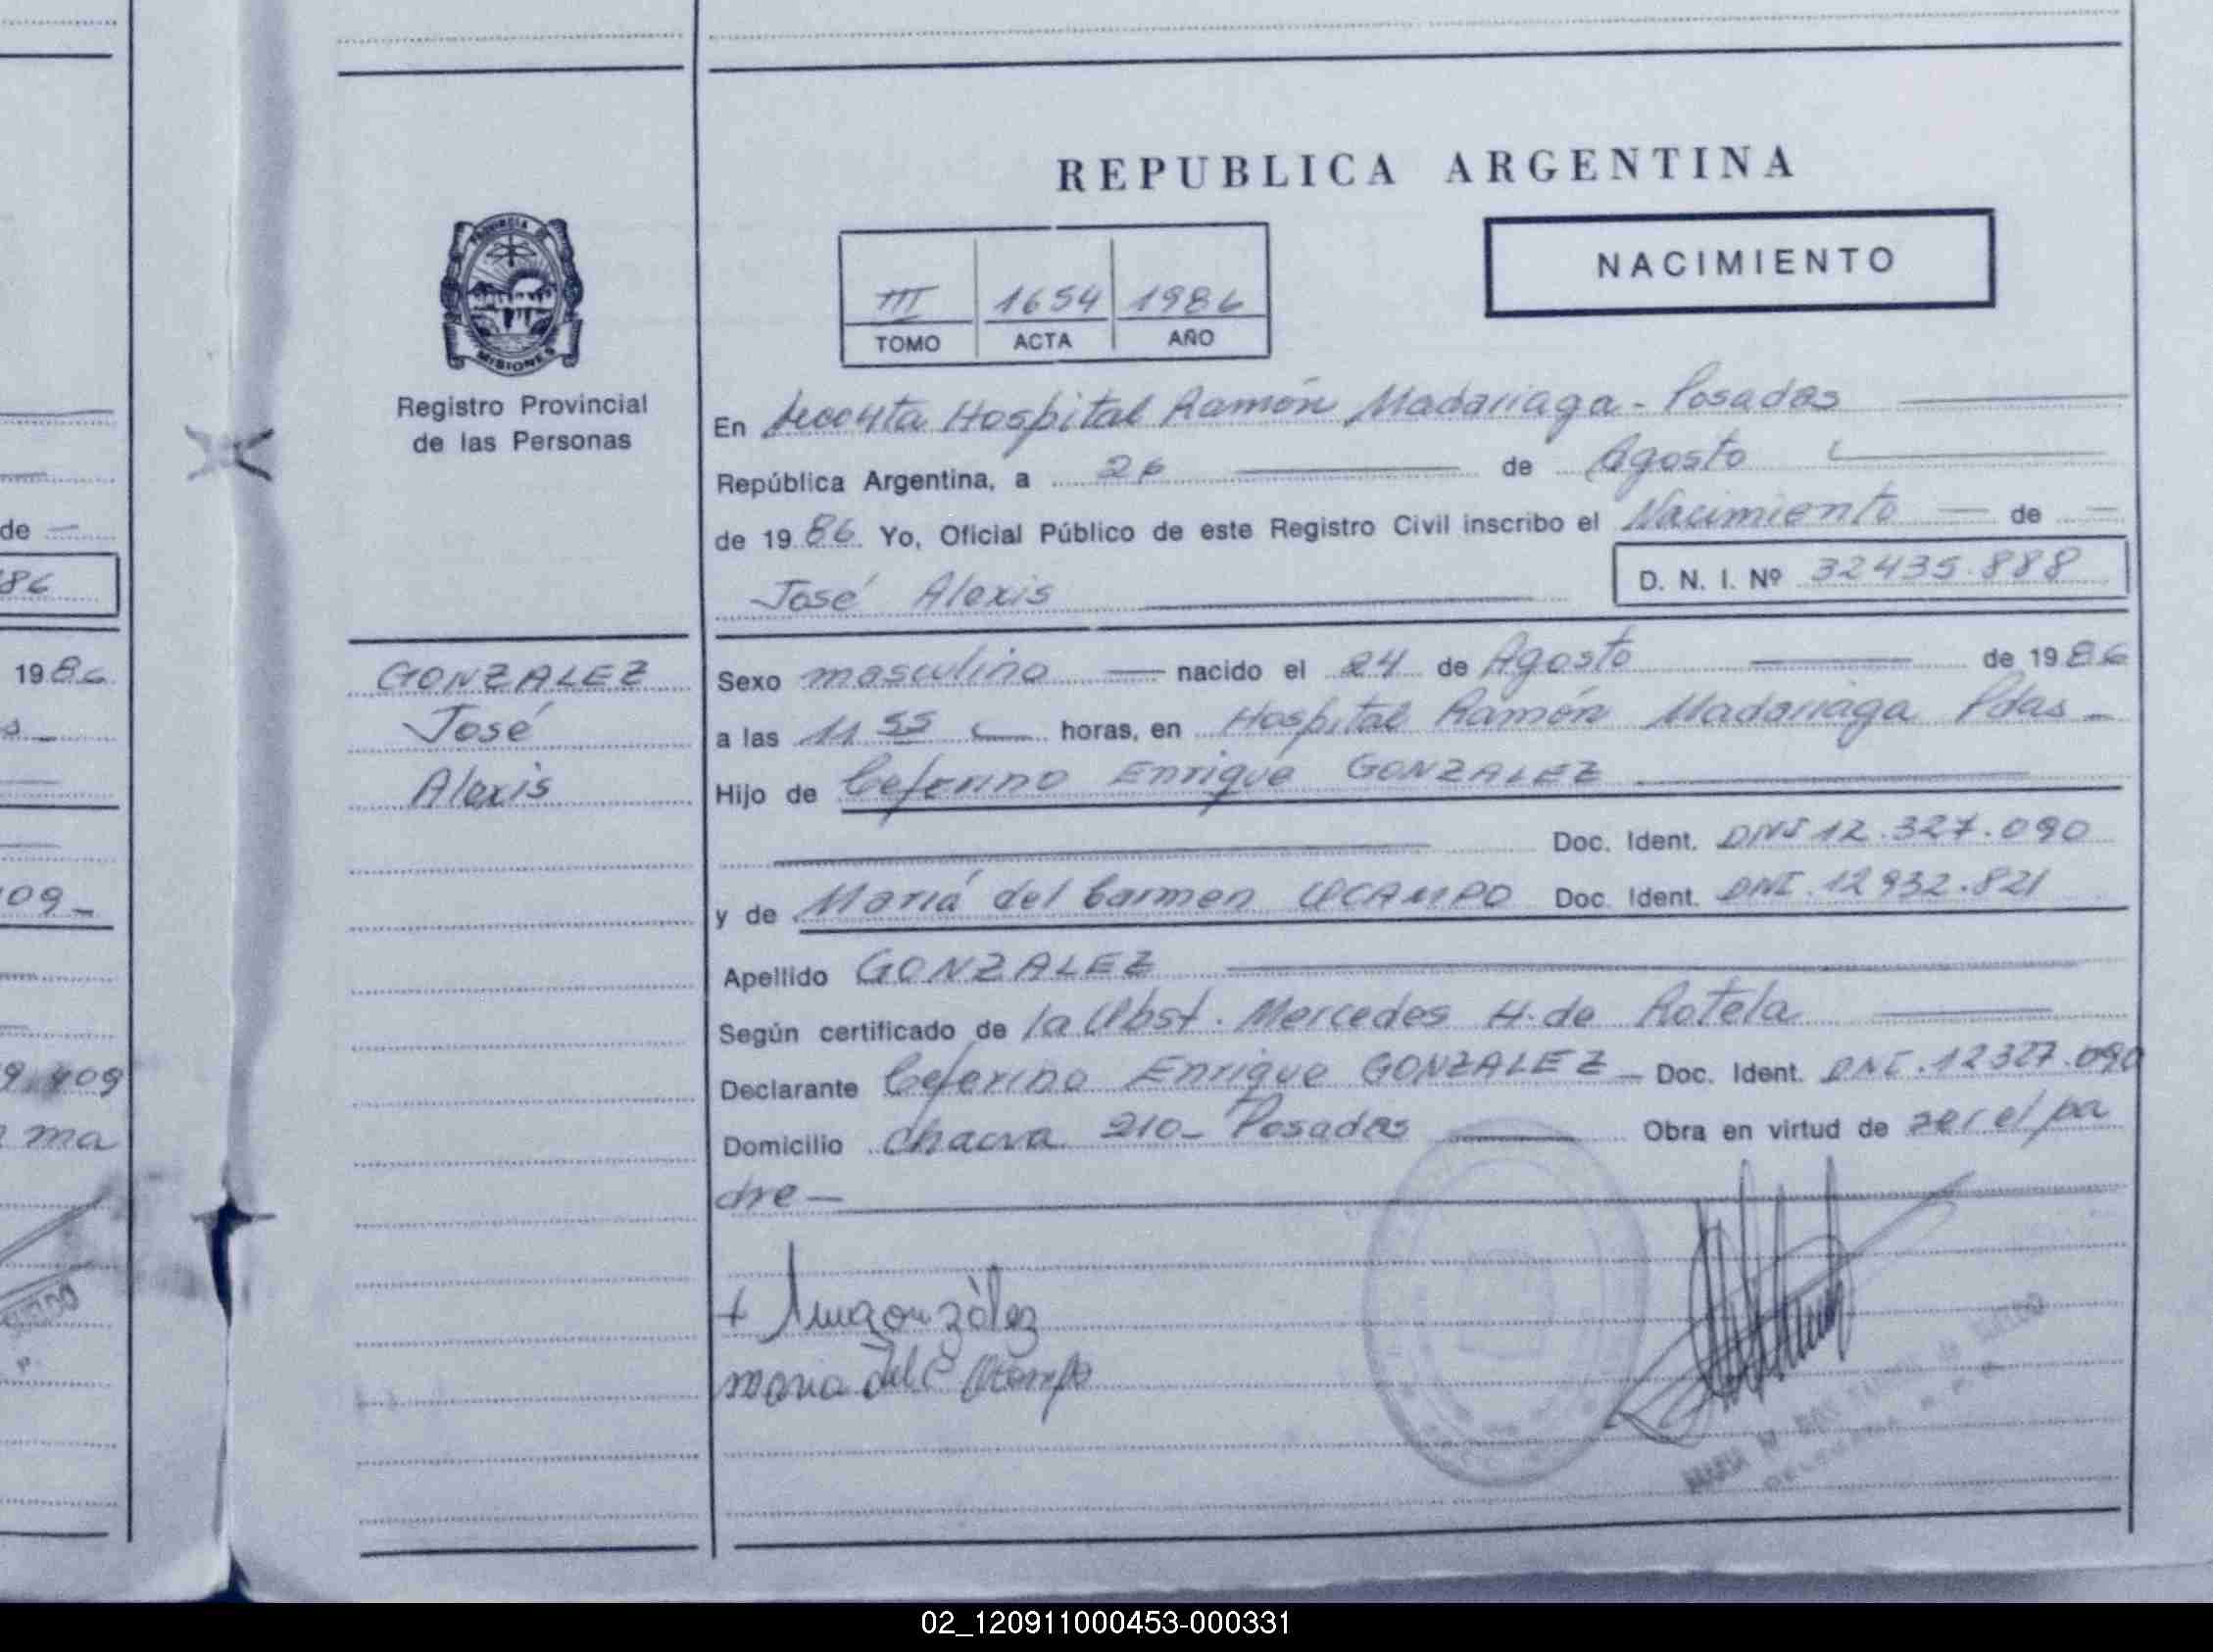 REPUBLICA ARGENTINA
NACIMIENTO
PROVINCIA DE
MISIONES
Registro Provincial
de las Personas
III 1654 1986
TOMO ACTA AÑO
En Hospital Ramón Madariaga - Posadas
República Argentina, a 26 de Agosto
de 1986 Yo, Oficial Público de este Registro Civil inscribo el Nacimiento — de —
José Alexis D. N. I. Nº 32435.888
GONZALEZ
José
Alexis
Sexo masculino — nacido el 24 de Agosto — de 1986
a las 11 55 horas, en Hospital Ramón Madariaga Pdas -
Hijo de Ceferino Enrique GONZALEZ
Doc. Ident. DNI 12.327.090
y de María del Carmen OCAMPO Doc. Ident. DNI. 12932.821
Apellido GONZALEZ
Según certificado de la Obst. Mercedes H. de Rotela
Declarante Ceferino Enrique GONZALEZ - Doc. Ident. DNI. 12327.090
Domicilio chacra 210 - Posadas Obra en virtud de ser el pa
dre -
maria del C Ocampo
de —
86
1986
09 -
9.409
ma
02_120911000453-000331